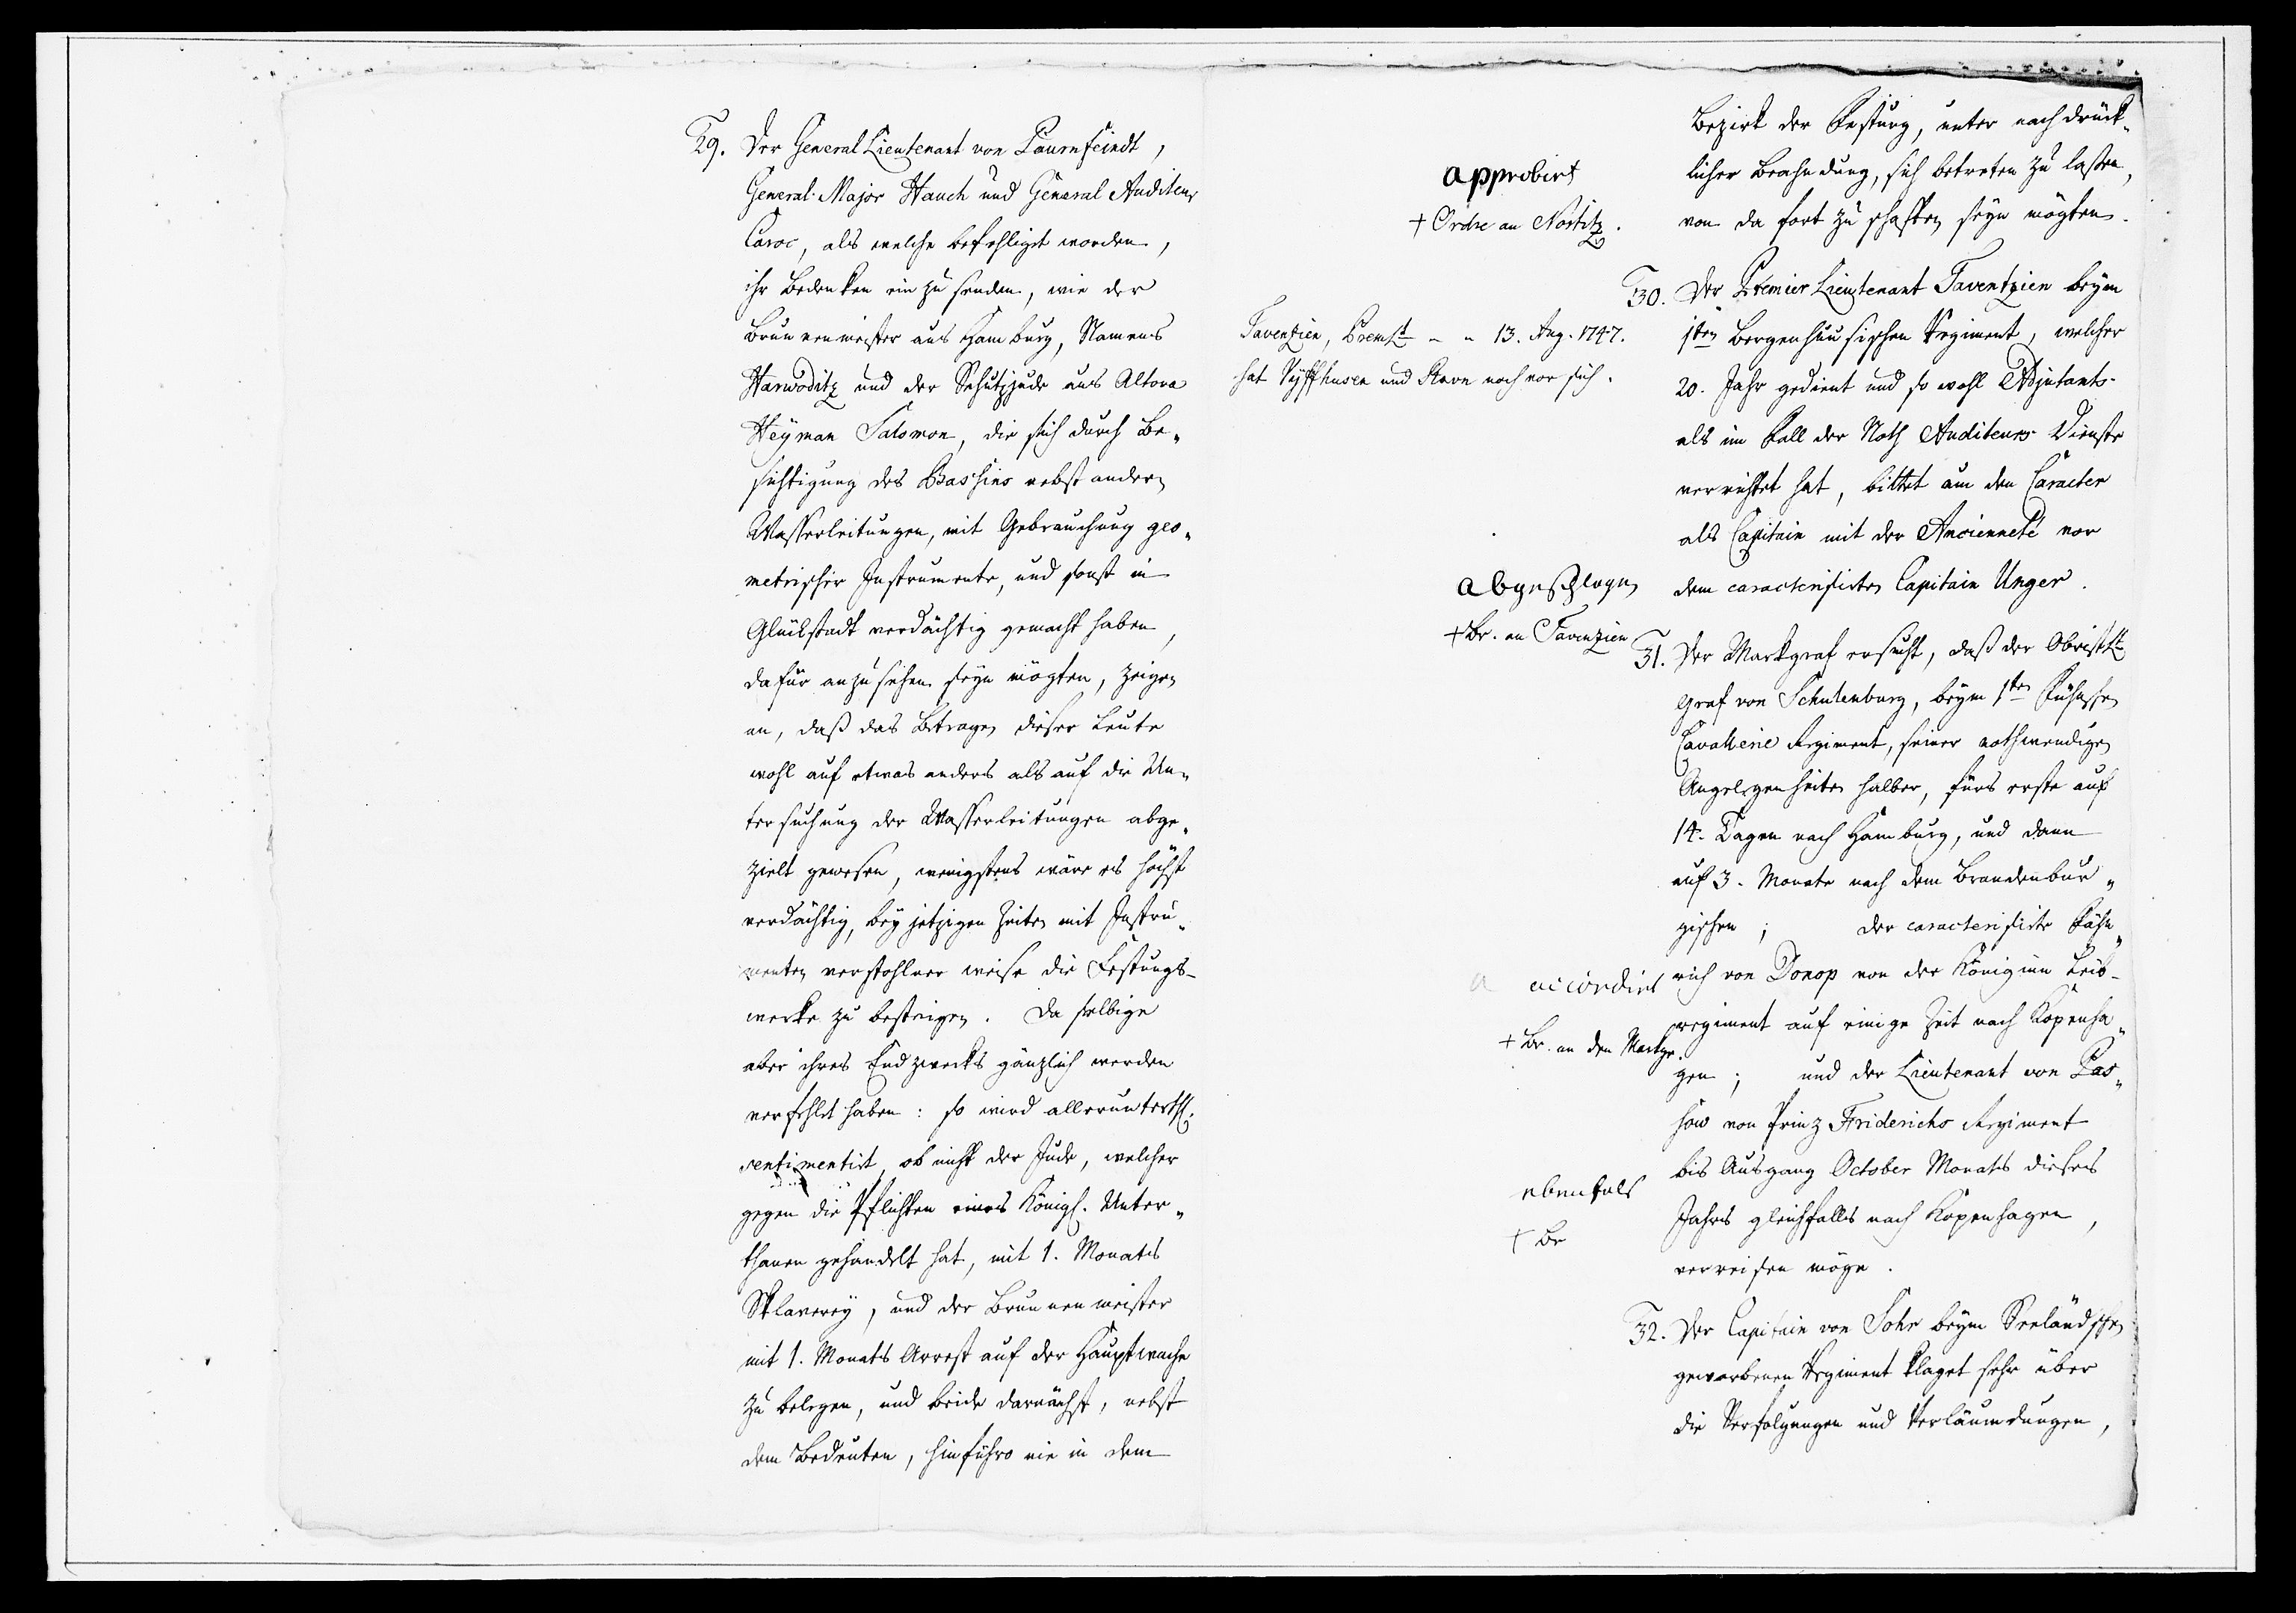 29. Der General Lieutenant von Paurnfeindt,
General-Major Hauch und General Auditeur
Caroc, als welche befehliget worden,
ihr Bedenken ein zu senden, wie der
Brunnenmeister aus Hamburg, Namens
Harwoditz und der Schutzjude aus Altona
Heyman Salomon, die sich durch Be„
sichtigung des Bassins nebst andern
Wasserleitungen, mit Gebrauchung geo„
metrischer Instrumente, und sonst in
Glückstadt verdächtig gemacht haben,
dafür anzusehen seyn mögten, zeigen
an, daß das Betragen dieser Leute
wohl auf etwas anders als auf die Un„
tersuchung der Wasserleitungen abge„
zielt gewesen, wenigstens wäre es höchst
verdächtig, bey jetzigen Zeiten mit Instru„
menten verstohlner weise die Festungs-
werke zu besteigen. Da selbige
aber ihres Endzwecks gänzlich werden
verfehlet haben: so wird allerunterth.
sentimentirt, ob nicht der Jude, welcher
gegen die Pflichten eines Königl. Unter„
thanen gehandelt hat, mit 1. Monats
Sklaverey, und der Brunnenmeister
mit 1. Monats Arrest auf der Hauptwache
zu belegen, und beide darnächst, nebst
dem Bedeuten, hinführo nie in dem
Bezirk der Festung, unter nachdrück„
licher Beahndung, sich betreten zu lassen,
von da fort zu schaffen seyn mögten.
approbirt
+ Ordre an Nostitz.
30. Der Premier Lieutenant Taventzien beym
1sten Bergenhuusischen Regiment, welcher
20. Jahr gedient und so wohl Adjutants-
als im Fall der Noth Auditeurs Dienste
verrichtet hat, bittet um den Caracter
als Capitain mit der Ancienneté vor
dem caracterisirten Capitain Unger.
Tavenzien, Premlt - - 13. Aug. 1747.
hat Vyffhusen und noch vor sich.
abgeschlagen
+ Br. an Tavenzien
31. Der Markgraf ersucht, daß der Obristlt
Graf von Schulenburg, beym 1ten Fühnschen
Cavallerie Regiment, seiner nothwendigen
Angelegenheiten halber, fürs erste auf
14. Tagen nach Hamburg, und dann
auf 3. Monate nach dem Brandenbur„
gischen; der caracterisirte Fähn„
rich von Donop von der Königinn Leib-
regiment auf einige Zeit nach Kopenha„
gen; und der Lieutenant von Pas„
sow von Prinz Friderichs Regiment
bis Ausgang October Monats dieses
Jahrs gleichfalls nach Kopenhagen,
verreisen möge.
accordirt
+ Br. an den Markgr.
ebenfals
+ Br
32. Der Capitain von Sohr beym Seeländschen
geworbenen Regiment klaget sehr über
die Verfolgungen und Verläumdungen,